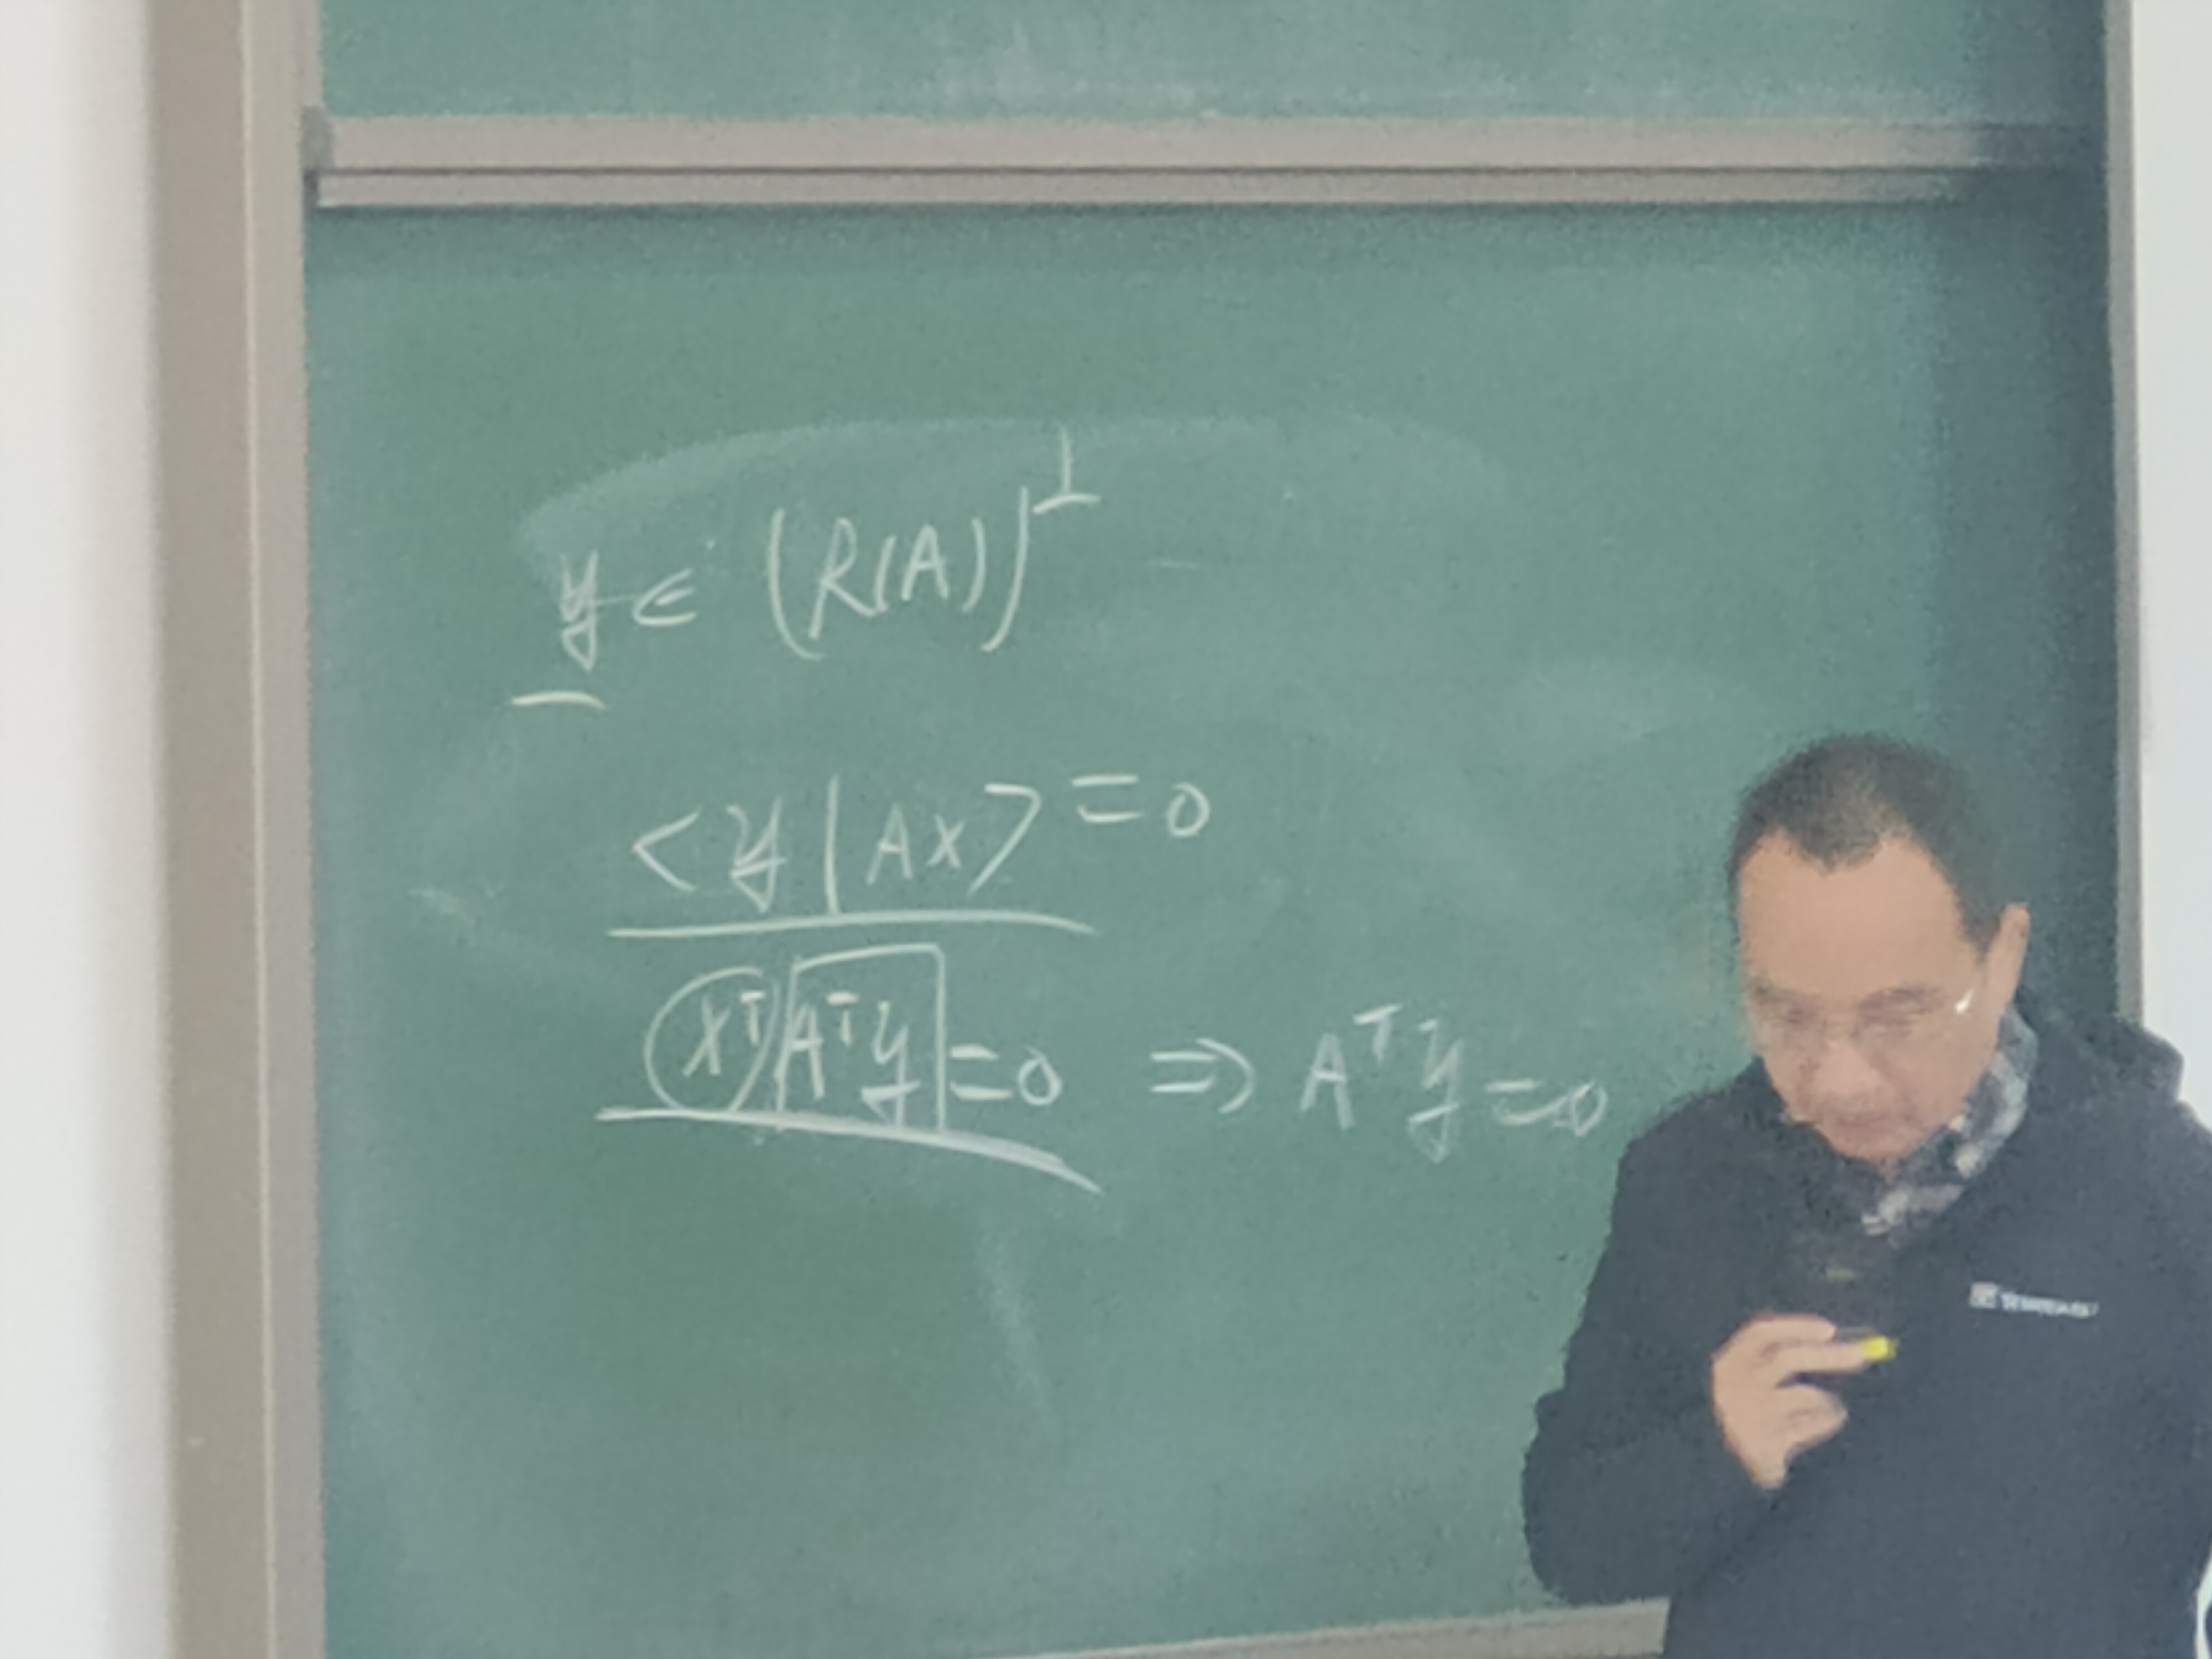 y ∈ (R(A))^⊥
<y|Ax> = 0
x^T A^T y = 0 ⇒ A^T y = 0